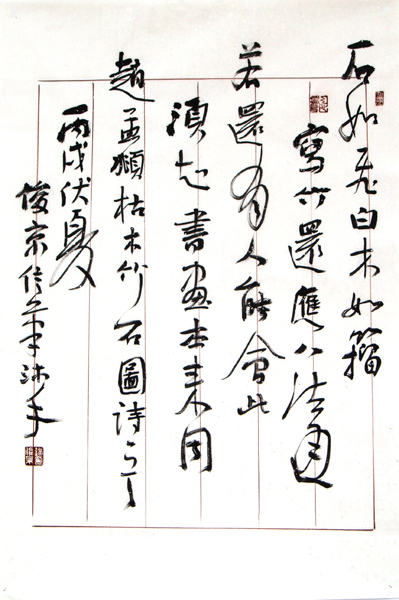 石如飛白木如籀
寫竹還應八法通
若還有人能會此
須知書畫本來同
趙孟頫枯木竹石圖詩
丙戌伏夏
俊京信筆